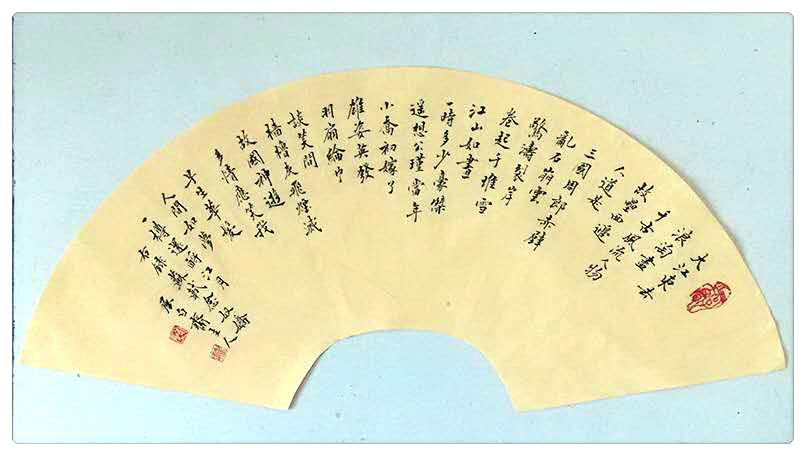 大江東去
浪淘盡
千古風流人物
故壘西邊
人道是
三國周郎赤壁
亂石崩雲
驚濤裂岸
卷起千堆雪
江山如畫
一時多少豪傑
遥想公瑾當年
小喬初嫁了
雄姿英發
羽扇綸巾
談笑間
檣櫓灰飛煙滅
故國神遊
多情應笑我
早生華髮
人間如夢
一樽還酹江月
右録蘇軾念奴嬌
齋主人